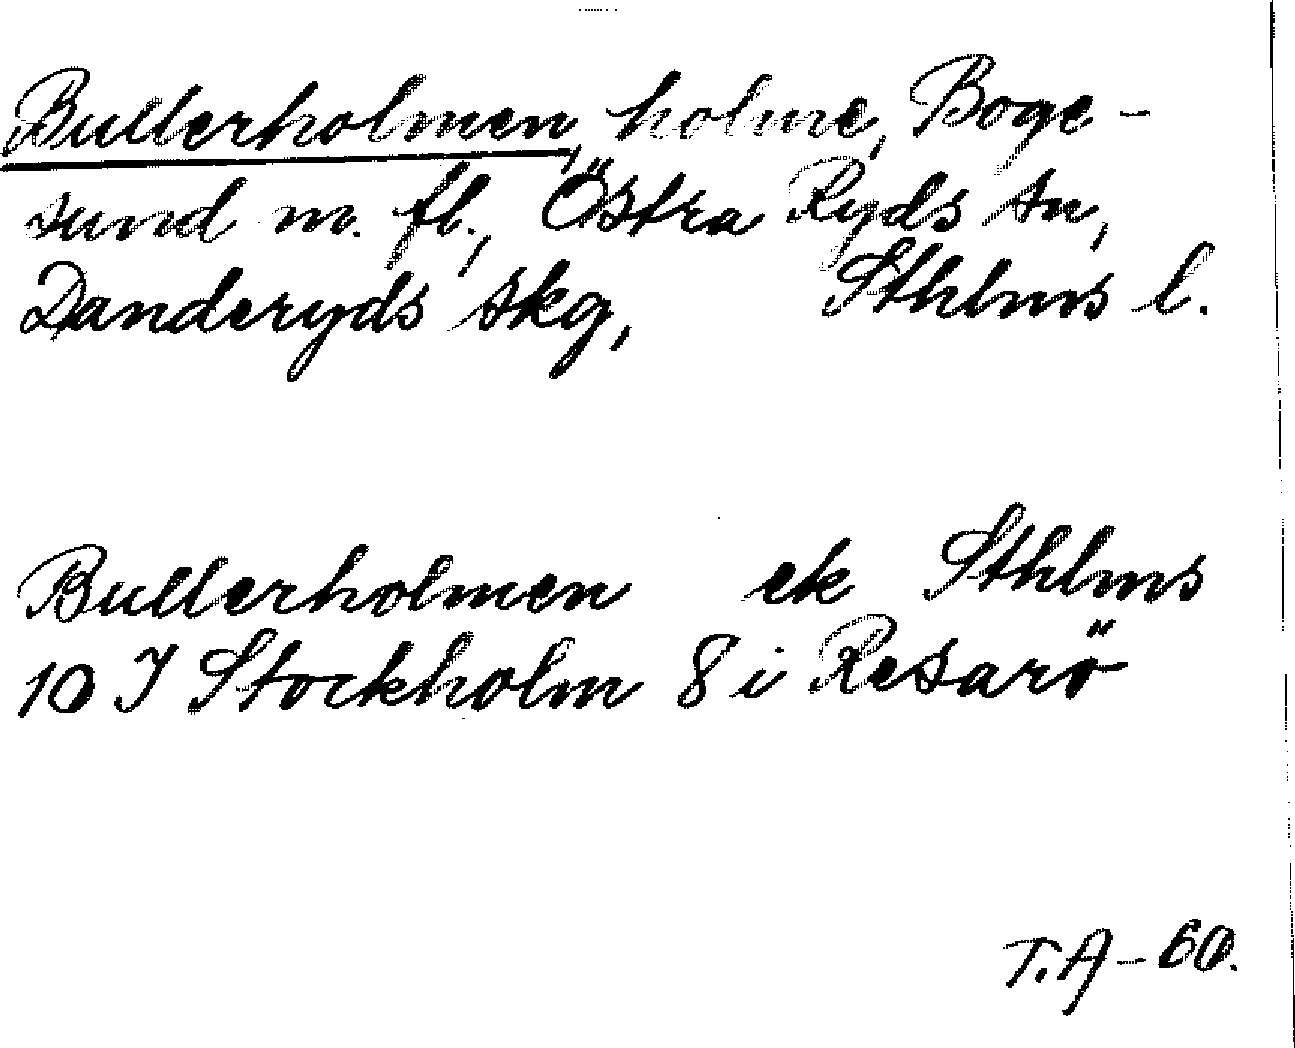 Bullerholmen, holme, Boge-
sund m. fl., Östra Ryds sn,
Danderyds skg, Sthlms l.
Bullerholmen ek Sthlms
10 I Stockholm 8 i Resarö
T.A-60.